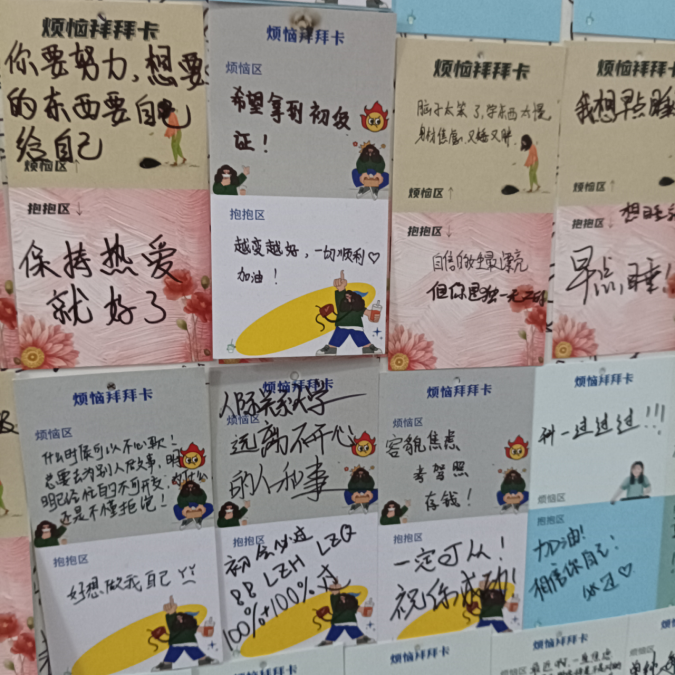 烦恼拜拜卡
你要努力,想要
的东西要自己
给自己
烦恼区
抱抱区
保持热爱
就好了
烦恼拜拜卡
烦恼区
希望拿到初级
证!
抱抱区
越变越好,一切顺利♡
加油!
烦恼拜拜卡
脑子太笨了,学东西太慢
身材焦虑,又矮又胖.
烦恼区↑
抱抱区↓
自信的女生最漂亮
但你是独一无二的
烦恼拜拜卡
我想早点睡
烦恼区↑
抱抱区↓
早点睡!
烦恼拜拜卡
烦恼区
什么时候可以不心软!
总要去为别人做事,明
明已经忙的不可开交,为什么
还是不懂拒绝!
抱抱区
好想做我自己
烦恼拜拜卡
人际关系
烦恼区
远离不开心
的人和事
抱抱区
初会必过
88 LZH LZQ
100%+100%过
烦恼拜拜卡
烦恼区
容貌焦虑
考驾照
存钱!
抱抱区
一定可以!
祝你成功!
烦恼拜拜卡
升一过过过!!!
烦恼区
抱抱区
加油!
相信你自己!
必过♡
烦恼拜拜卡
烦恼拜拜卡
烦恼拜拜卡